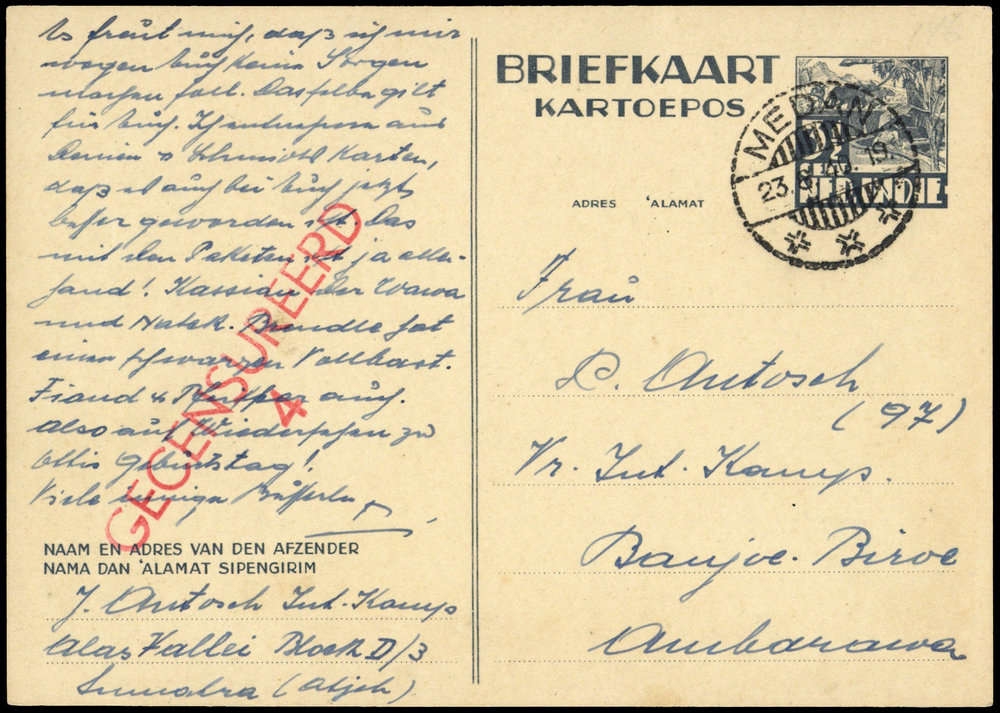 Es freut mich, daß ich mir
wegen Euch keine Sorgen
machen soll. Dasselbe gilt
für Euch. Ich entnehme aus
Karten,
daß es auch bei Euch jetzt
besser geworden ist. Das
mit den Paketen ist ja aller-
hand! Kassian der Wawa
und Natek. Brendle hat
einen schwarzen Vollbart.
Fiand & Pfeiffer auch.
Also auf Wiedersehen zu
Ottis Geburtstag!
Viele innige Busserln
GECENSUREERD
4
NAAM EN ADRES VAN DEN AFZENDER
NAMA DAN 'ALAMAT SIPENGIRIM
J. Antosch Int. Kamp
Alas Vallei Block D/3
Sumatra (Atjeh)
BRIEFKAART
KARTOEPOS
MEDAN
23.8.40.19.
3½
NED. INDIE
ADRES 'ALAMAT
Frau
D. Antosch
(97)
Vr. Int. Kamp.
Banjoe-Biroe
Ambarawa